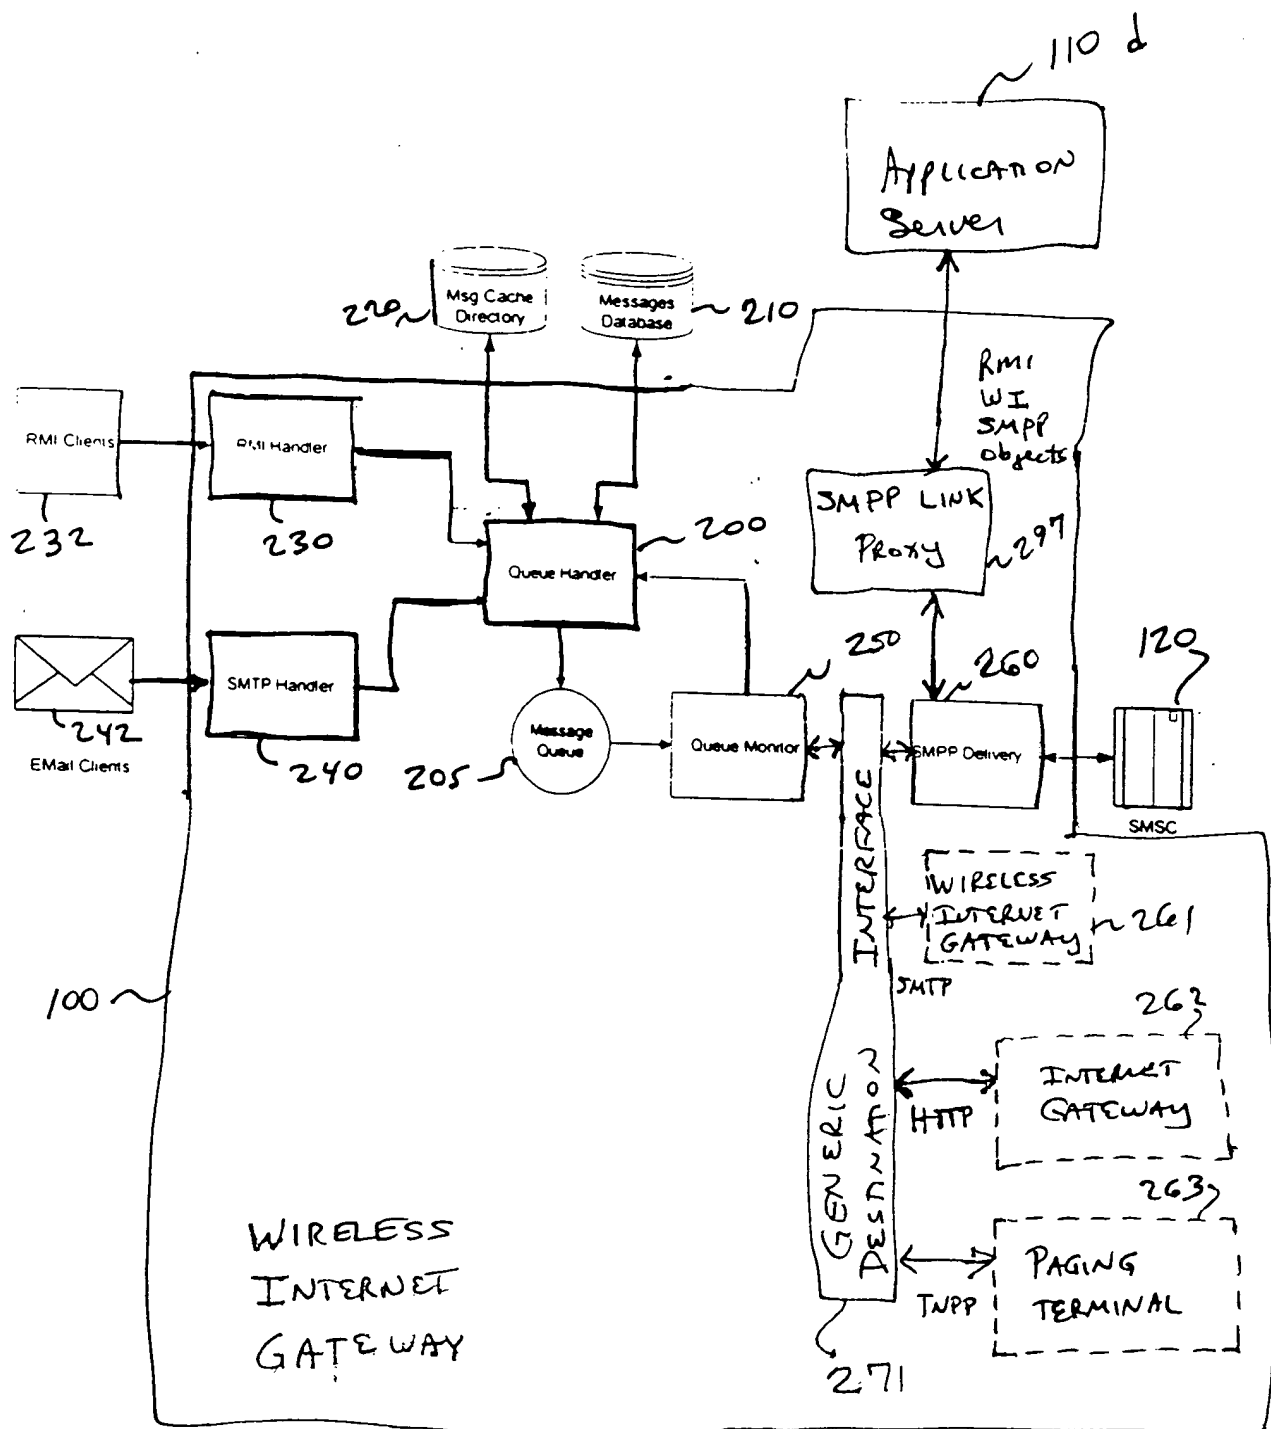 110 d
APPLICATION
Server
220
Msg Cache
Directory
Messages
Database
210
RMI
WI
SMPP
Objects
RMI Clients
232
RMI Handler
230
SMPP LINK
Proxy
297
200
Queue Handler
250
260
120
SMTP Handler
240
242
EMail Clients
Message
Queue
205
Queue Monitor
SMPP Delivery
SMSC
GENERIC
DESTINATION
INTERFACE
WIRELESS
INTERNET
GATEWAY
261
SMTP
100
262
INTERNET
GATEWAY
HTTP
263
PAGING
TERMINAL
TNPP
271
WIRELESS
INTERNET
GATEWAY